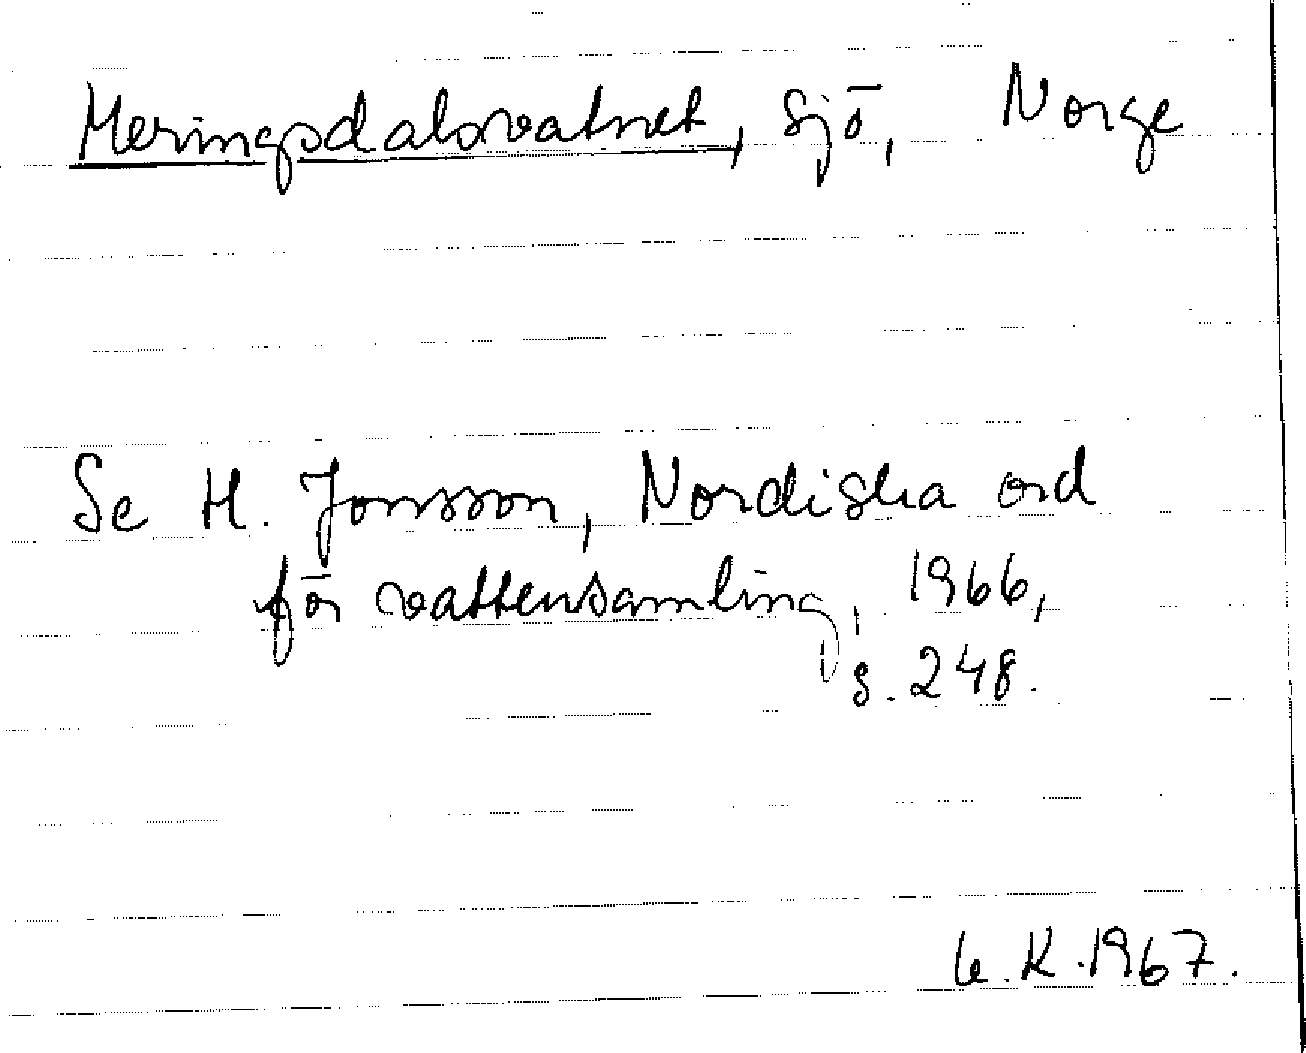 Meringsdalsvatnet, sjö, Norge
Se H. Jonsson, Nordiska ord
för vattensamling, 1966,
s. 248.
K. 1967.